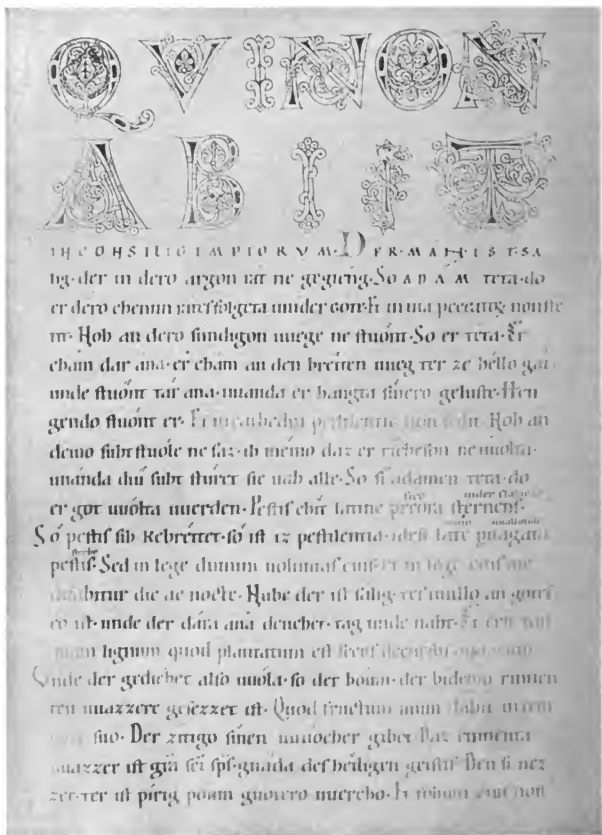 QVI NON
ABIIT
IN CONSILIO IMPIORVM· DER·MAN·IST·SA
lig·der in dero argon rat ne gegieng·So ADAM teta·do
er dero chenun rates folgeta uuider gote· Et in uia peccatorum non ste
tit· Noh an dero sundigon uuege ne stuont·So er teta· Er
cham dar ana·er cham an den breiten uueg ter ze hello gat
unde stuont tar ana·uuanda er hangta sinero geluste·Hen
gendo stuont er· Et in cathedra pestilentie non sedit· Noh an
demo suht stuole ne saz·ih meino daz er richeson ne uuolta·
uuanda diu suht sturet sie nah alle·So si adamen teta·do
er got uuolta uuerden·Pestis chit latine pecora sternens·
So pestis sih kebreitet·so ist iz pestilentia·idest late peruagata
pestis·Sed in lege domini uoluntas eius·et in lege eius me
ditabitur die ac nocte·Nube der ist salig·tes uuillo an gotes
eo ist·unde der dara ana denchet·tag unde naht·Et erit tam
quam lignum quod plantatum est secus decursus aquarum
Unde der gediehet also uuola·so der boum·der bi demo rinnen
ten uuazzere gesezzet ist·Quod fructum suum dabit in tem
pore suo·Der zitigo sinen uuuocher gibet Daz rinnenta
uuazzer ist gratia sancti spiritus·gnada des heiligen geistis Den si nez
zet·ter ist pirig poum guotero uuercho·Et folium eius non